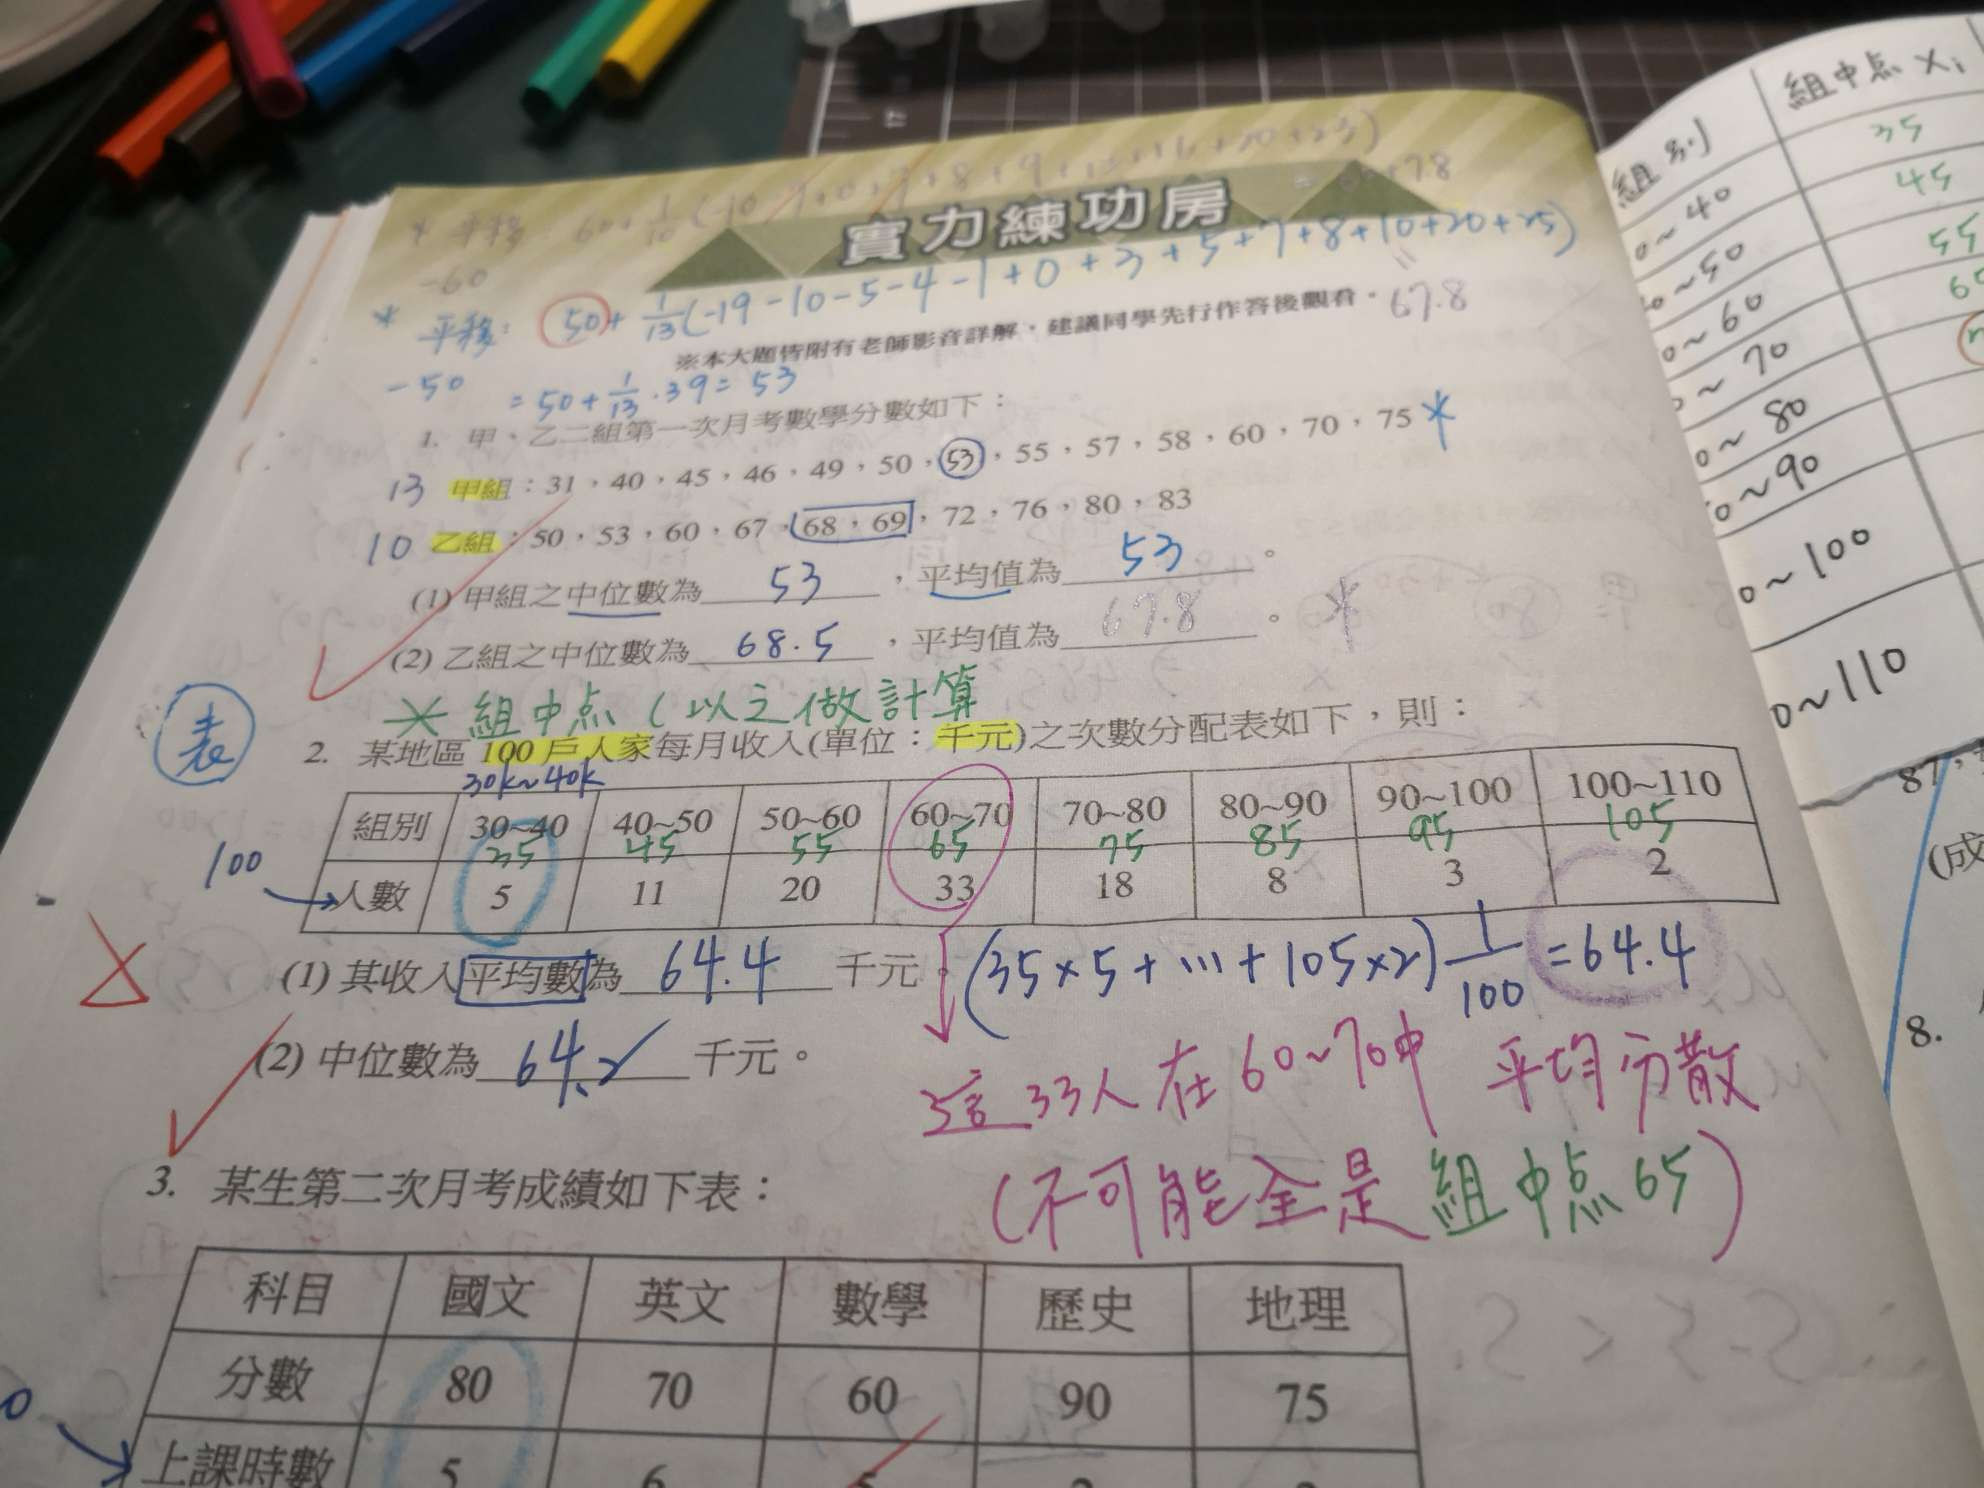 實力練功房
* 平移: 50+1/13(-19-10-5-4-1+0+3+5+7+8+10+20+25)
-60
-50
=50+1/13·39=53
67.8
※本大題皆附有老師影音詳解，建議同學先行作答後觀看。
1. 甲、乙二組第一次月考數學分數如下：
13 甲組：31，40，45，46，49，50，53，55，57，58，60，70，75 *
10 乙組：50，53，60，67，68，69，72，76，80，83
(1) 甲組之中位數為 53 ，平均值為 53 。
(2) 乙組之中位數為 68.5 ，平均值為 67.8 。 *
* 組中点 (以之做計算
表
2. 某地區 100 戶人家每月收入(單位：千元)之次數分配表如下，則：
30k~40k
組別 30~40 40~50 50~60 60~70 70~80 80~90 90~100 100~110
35 45 55 65 75 85 95 105
100 → 人數 5 11 20 33 18 8 3 2
(1) 其收入平均數為 64.4 千元 (35×5+…+105×2) 1/100 =64.4
(2) 中位數為 64.2 千元。
這33人在60~70中 平均分散
(不可能全是組中点65)
3. 某生第二次月考成績如下表：
科目 國文 英文 數學 歷史 地理
分數 80 70 60 90 75
上課時數 5 6 5
組別 組中点 Xi
0~40 35
0~50 45
0~60 55
~70
0~80
0~90
0~100
0~110
87,
(成
8.